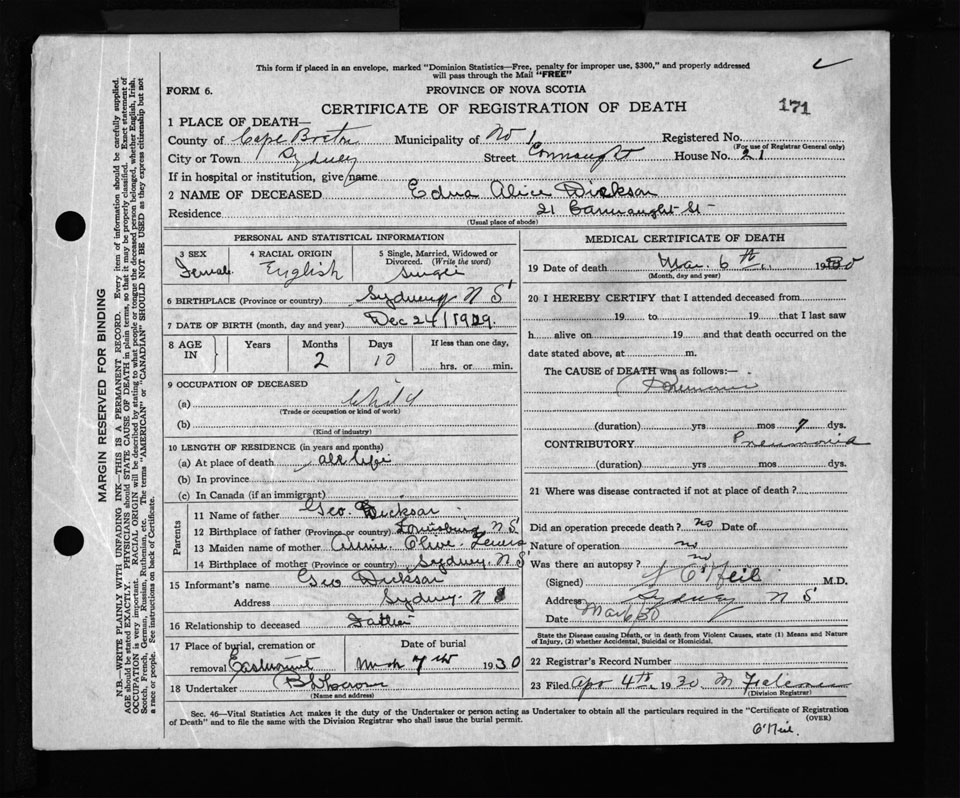 This form if placed in an envelope, marked "Dominion Statistics—Free, penalty for improper use, $300," and properly addressed
will pass through the Mail "FREE"
FORM 6.
PROVINCE OF NOVA SCOTIA
CERTIFICATE OF REGISTRATION OF DEATH
171
1 PLACE OF DEATH—
County of Cape Breton Municipality of No 1 Registered No.
(For use of Registrar General only)
City or Town Sydney Street Connaught House No. 21
If in hospital or institution, give name
2 NAME OF DECEASED Edna Alice Dickson
Residence 21 Connaught St
(Usual place of abode)
PERSONAL AND STATISTICAL INFORMATION
3 SEX
Female
4 RACIAL ORIGIN
English
5 Single, Married, Widowed or
Divorced. (Write the word)
Single
6 BIRTHPLACE (Province or country) Sydney N S
7 DATE OF BIRTH (month, day and year) Dec 24 1929.
8 AGE IN
Years Months Days If less than one day,
2 10 hrs. or min.
9 OCCUPATION OF DECEASED
(a) Child
(Trade or occupation or kind of work)
(b)
(Kind of industry)
10 LENGTH OF RESIDENCE (in years and months)
(a) At place of death all life
(b) In province
(c) In Canada (if an immigrant)
Parents
11 Name of father Geo. Dickson
12 Birthplace of father (Province or country) Louisburg N S
13 Maiden name of mother Annie Olive Lewis
14 Birthplace of mother (Province or country) Sydney. N S
15 Informant's name Geo Dickson
Address Sydney. N S
16 Relationship to deceased Father
17 Place of burial, cremation or Date of burial
removal Eastmount Mch 7th 1930
18 Undertaker
(Name and address)
MEDICAL CERTIFICATE OF DEATH
19 Date of death Mar. 6th 1930
(Month, day and year)
20 I HEREBY CERTIFY that I attended deceased from
19 to 19 that I last saw
h alive on 19 and that death occurred on the
date stated above, at m.
The CAUSE of DEATH was as follows:—
(duration) yrs mos 7 dys.
CONTRIBUTORY Pneumonia
(duration) yrs mos dys.
21 Where was disease contracted if not at place of death?
Did an operation precede death? no Date of
Nature of operation no
Was there an autopsy? no
(Signed) O'Neil M.D.
Address Sydney N S
Date Mar 6 30
State the Disease causing Death, or in death from Violent Causes, state (1) Means and Nature
of Injury, (2) whether Accidental, Suicidal or Homicidal.
22 Registrar's Record Number
23 Filed Apr 4th 1930
(Division Registrar)
Sec. 46—Vital Statistics Act makes it the duty of the Undertaker or person acting as Undertaker to obtain all the particulars required in the "Certificate of Registration
of Death" and to file the same with the Division Registrar who shall issue the burial permit.
(OVER)
O'Neil.
MARGIN RESERVED FOR BINDING
N.B.—WRITE PLAINLY WITH UNFADING INK—THIS IS A PERMANENT RECORD. Every item of information should be carefully supplied.
AGE should be stated EXACTLY. PHYSICIANS should STATE CAUSE OF DEATH in plain terms, so that it may be properly classified. Exact statement of
OCCUPATION is very important. RACIAL ORIGIN will be described by stating to what people or tongue the deceased person belonged, whether English, Irish,
Scotch, French, German, Russian, Ruthenian, etc. The terms "AMERICAN" or "CANADIAN" SHOULD NOT BE USED as they express citizenship but not
a race or people. See instructions on back of Certificate.